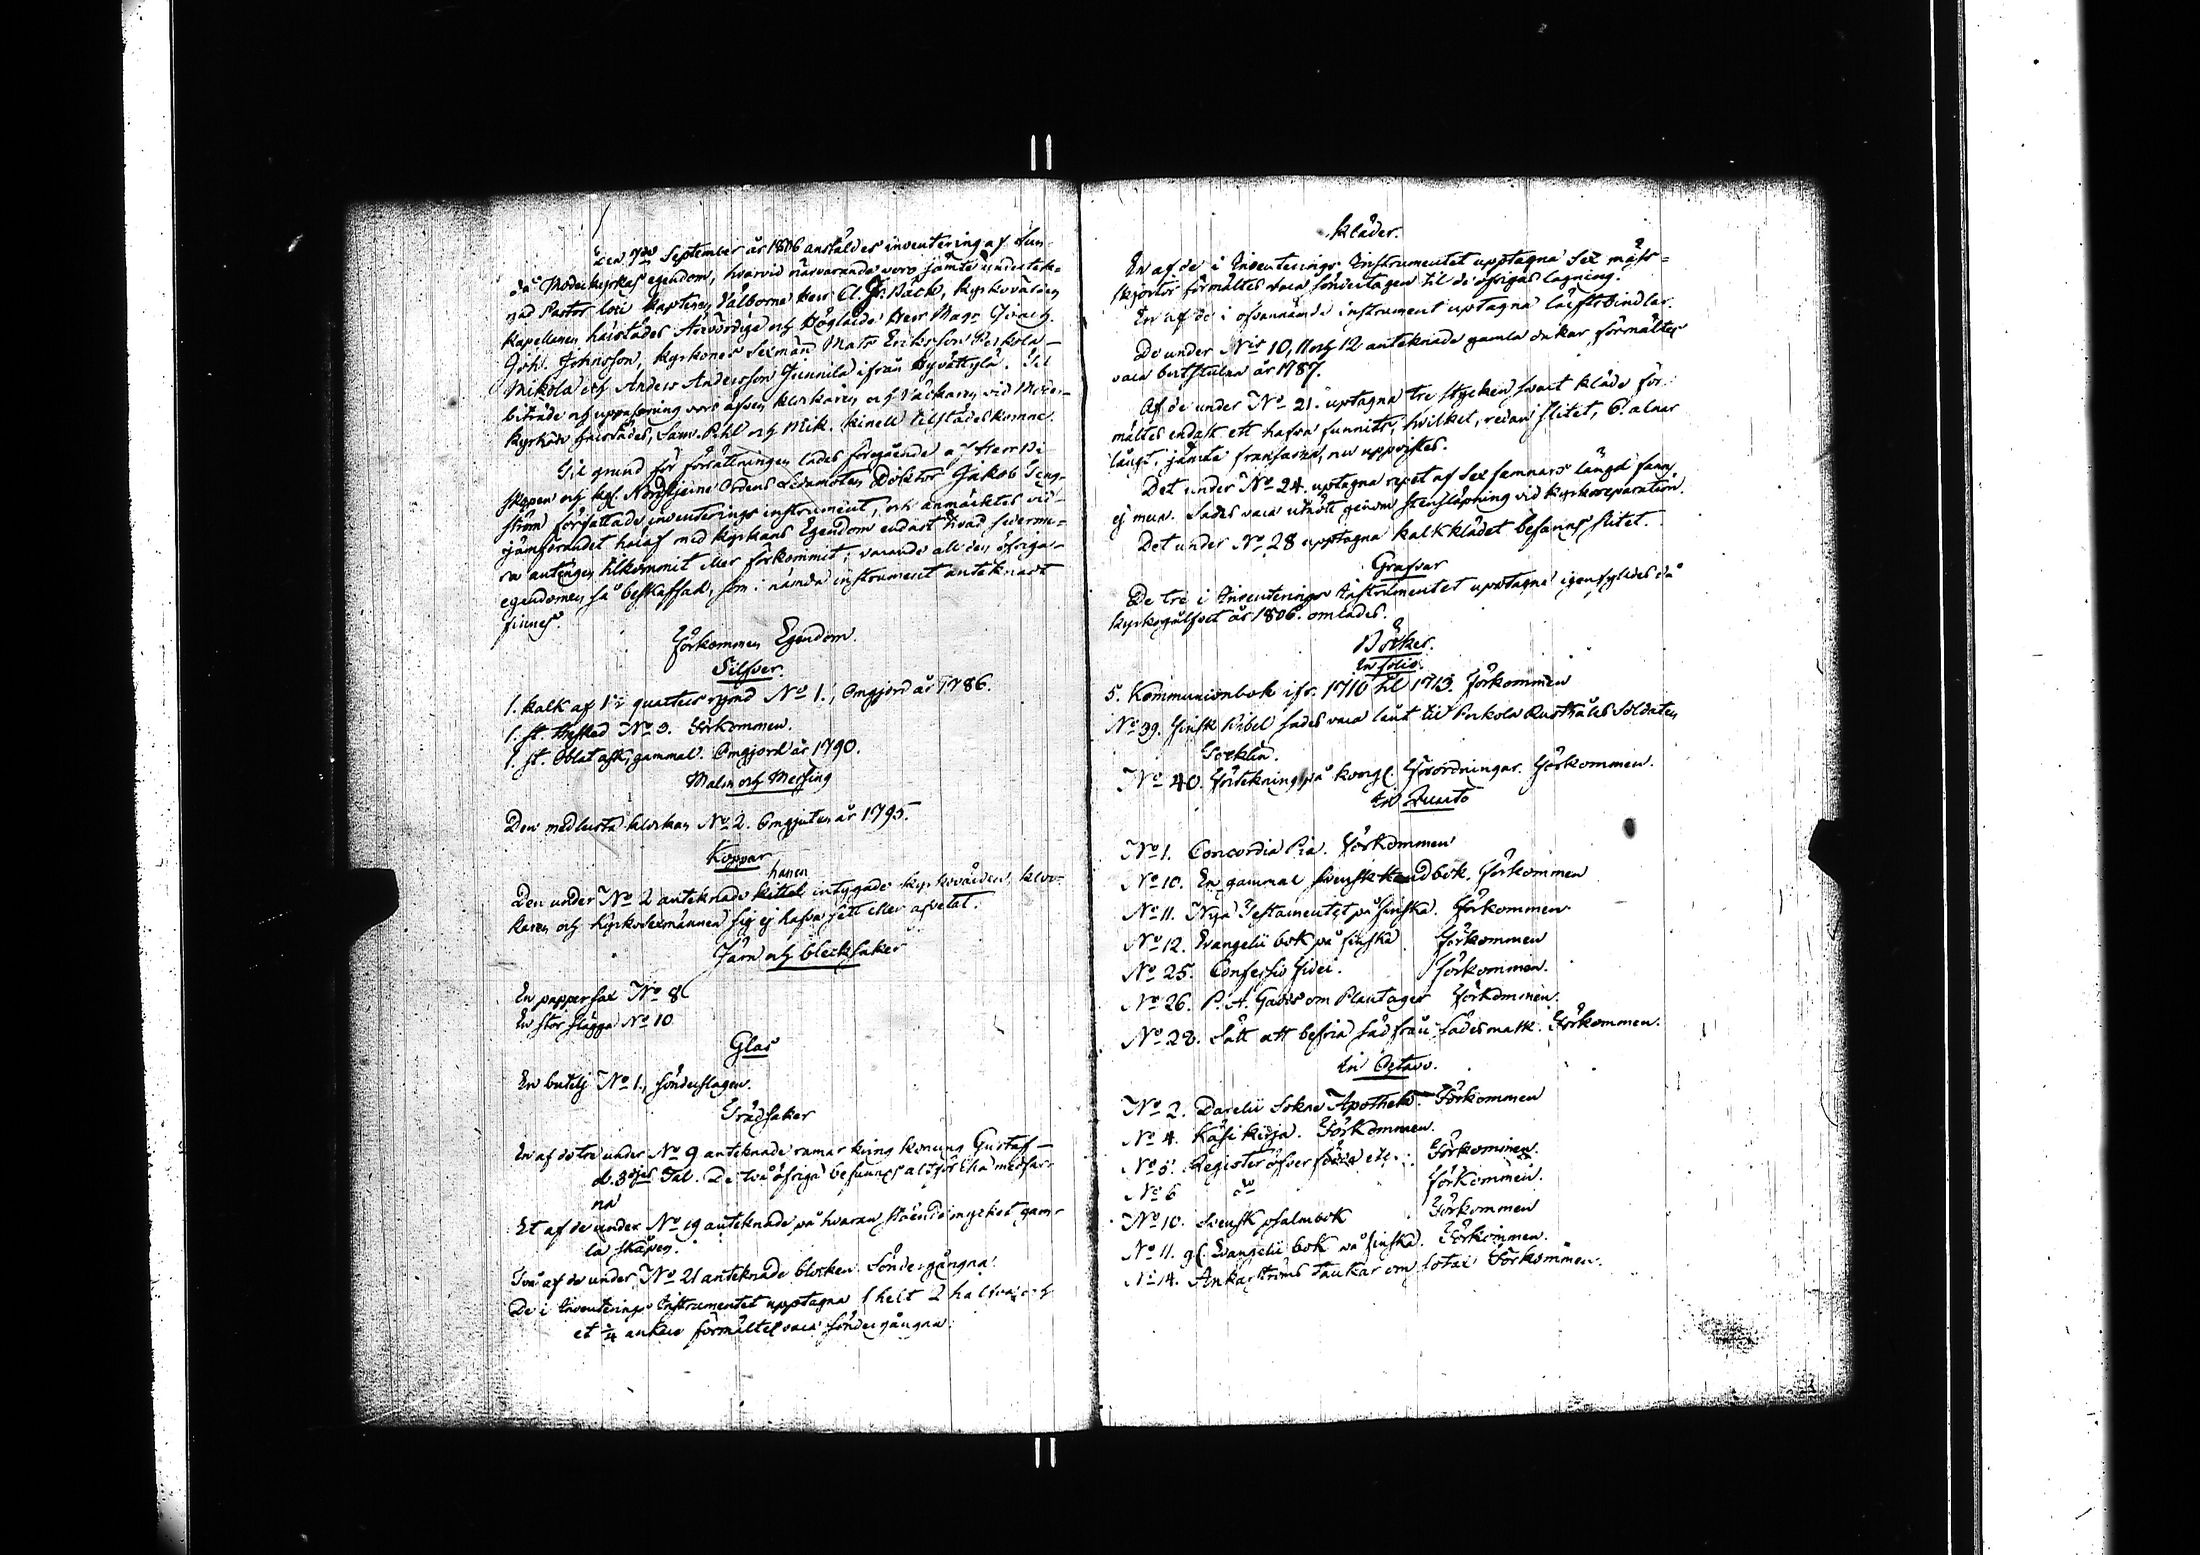 Den 7de September år 1806 anstäldes inventering af Sun-
då Moderkyrkas egendom, hvarvid närvarande voro jämte underteck-
nad Pastor loci Kaptein Välborne Herr C Fr. Bäck, Kyrkovärden
Kapellanen härstädes Ärevördige och Höglärde Herr Magr
Joh. Johnsson, kyrkones Sexmän Mats Eriksson Perkola
Mikola och Anders Andersson Junnila ifrån Byvättylä. Til
biträde och uppassning voro äfven klockaren och Väktaren vid Moder-
kyrkan härstädes, Sam. Pihl och Mik. Kinell tilstädeskomne.
Til grund för förrättningen lades föregående af Herr Bi-
skopen och kgl. Nordstjerne Ordens Ledamoten Doktor Jakob Teng-
ström författade inventerings instrument, och anmärktes vid
jämförandet häraf med kyrkans Egendom endast hvad sederme-
ra antingen tilkommit eller förkommit, varande all den öfriga
egendomen så beskaffad, som i nämda instrument antecknadt
finnes.
Förkommen Egendom.
Silfver.
1. kalk af 1½ quarters rymd No 1., Omgjord år 1786.
1. st. No 3. Förkommen.
1. st. Oblat ask, gammal. Omgjord år 1790.
Malm och Messing
Den medlersta klockan No 2. Omgjuten år 1795.
Koppar
hanen
Den under No 2 antecknade kittel intygade kyrkovärden, kloc-
karen och kyrkosexmännen sig ej hafva sett eller afvetat.
Järn och blecksaker
En pappersax No 8
En stor slägga No 10
Glas
En butelj No 1., sönderslagen.
Trädsaker
En af de tre under No 9 antecknade ramar kring Konung Gustaf
d. 3djes Tal. De två öfriga befunnos altför illa medfar-
na
Et af de under No 19 antecknade på hvaran stående mycket gam-
la skåpen.
Två af de under No 21 antecknade blocken. Söndergångna.
De i Inventerings Instrumentet upptagna 1 helt 2 halfva och
et ¼ ankare förmältes vara söndergångna.
Kläder.
En af de i Inventerings Instrumentet upptagna sex mäss-
skjortor förmältes vara söndertagen til de öfrigas lagning.
En af de i ofvannämde instrument uptagna
De under Nis 10, 11 och 12 antecknade gamla dukar, förmältes
vara bortstulna år 1787.
Af de under No 21. uptagna tre stycken svart kläde för-
mältes endast ett hafva funnits, hvilket, redan slitet, 6 alnar
långt, jämte fransarna, nu uppvistes.
Det under No 24. uptagna repet af sex famnars längd fanns
ej mera. Sades vara utnött genom stensläpning vid kyrkoreparation.
Det under No 28 upptagna kalkklädet befanns slitet.
Grafvar
De tre i Inventerings Instrumentet upptagna igenfyldes då
kyrkogålfvet år 1806. omlades.
Böcker.
In folio.
5. Kommunionbok ifr. 1710 til 1713. Förkommen
No 39. Finsk Bibel sades vara lånt til Perkola Rusthålls Soldaten
Nocklin.
No 40. Förtekning på kongl. Förordningar. Förkommen.
In Quarto
No 1. Concordia Pia. Förkommen
No 10. En gammal svensk Handbok. Förkommen
No 11. Nya Testamentet på finska. Förkommen
No 12. Evangelii bok på finska Förkommen
No 25. Confessio Fidei. Förkommen.
No 26. P. A. Gadds om Plantager Förkommen.
No 28. Sätt att befria säd från sädesmask. Förkommen.
In Octavo.
No 2. Darelii Sokne Apothek. Förkommen
No 4. Käsi kirja. Förkommen.
No 5. Register öfver etc. Förkommen.
No 6 do Förkommen.
No 10. Svensk psalmbok Förkommen
No 11. gl. Evangelii bok på finska. Förkommen.
No 14. Ankarströms tankar om Förkommen.